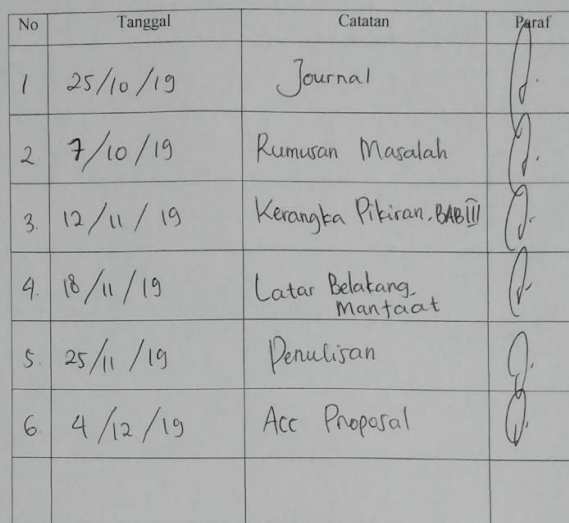 No Tanggal Catatan Paraf
1 25/10/19 Journal
2 7/10/19 Rumusan Masalah
3. 12/11/19 Kerangka Pikiran, BAB III
4. 18/11/19 Latar Belakang,
Manfaat
5. 25/11/19 Penulisan
6. 4/12/19 Acc Proposal